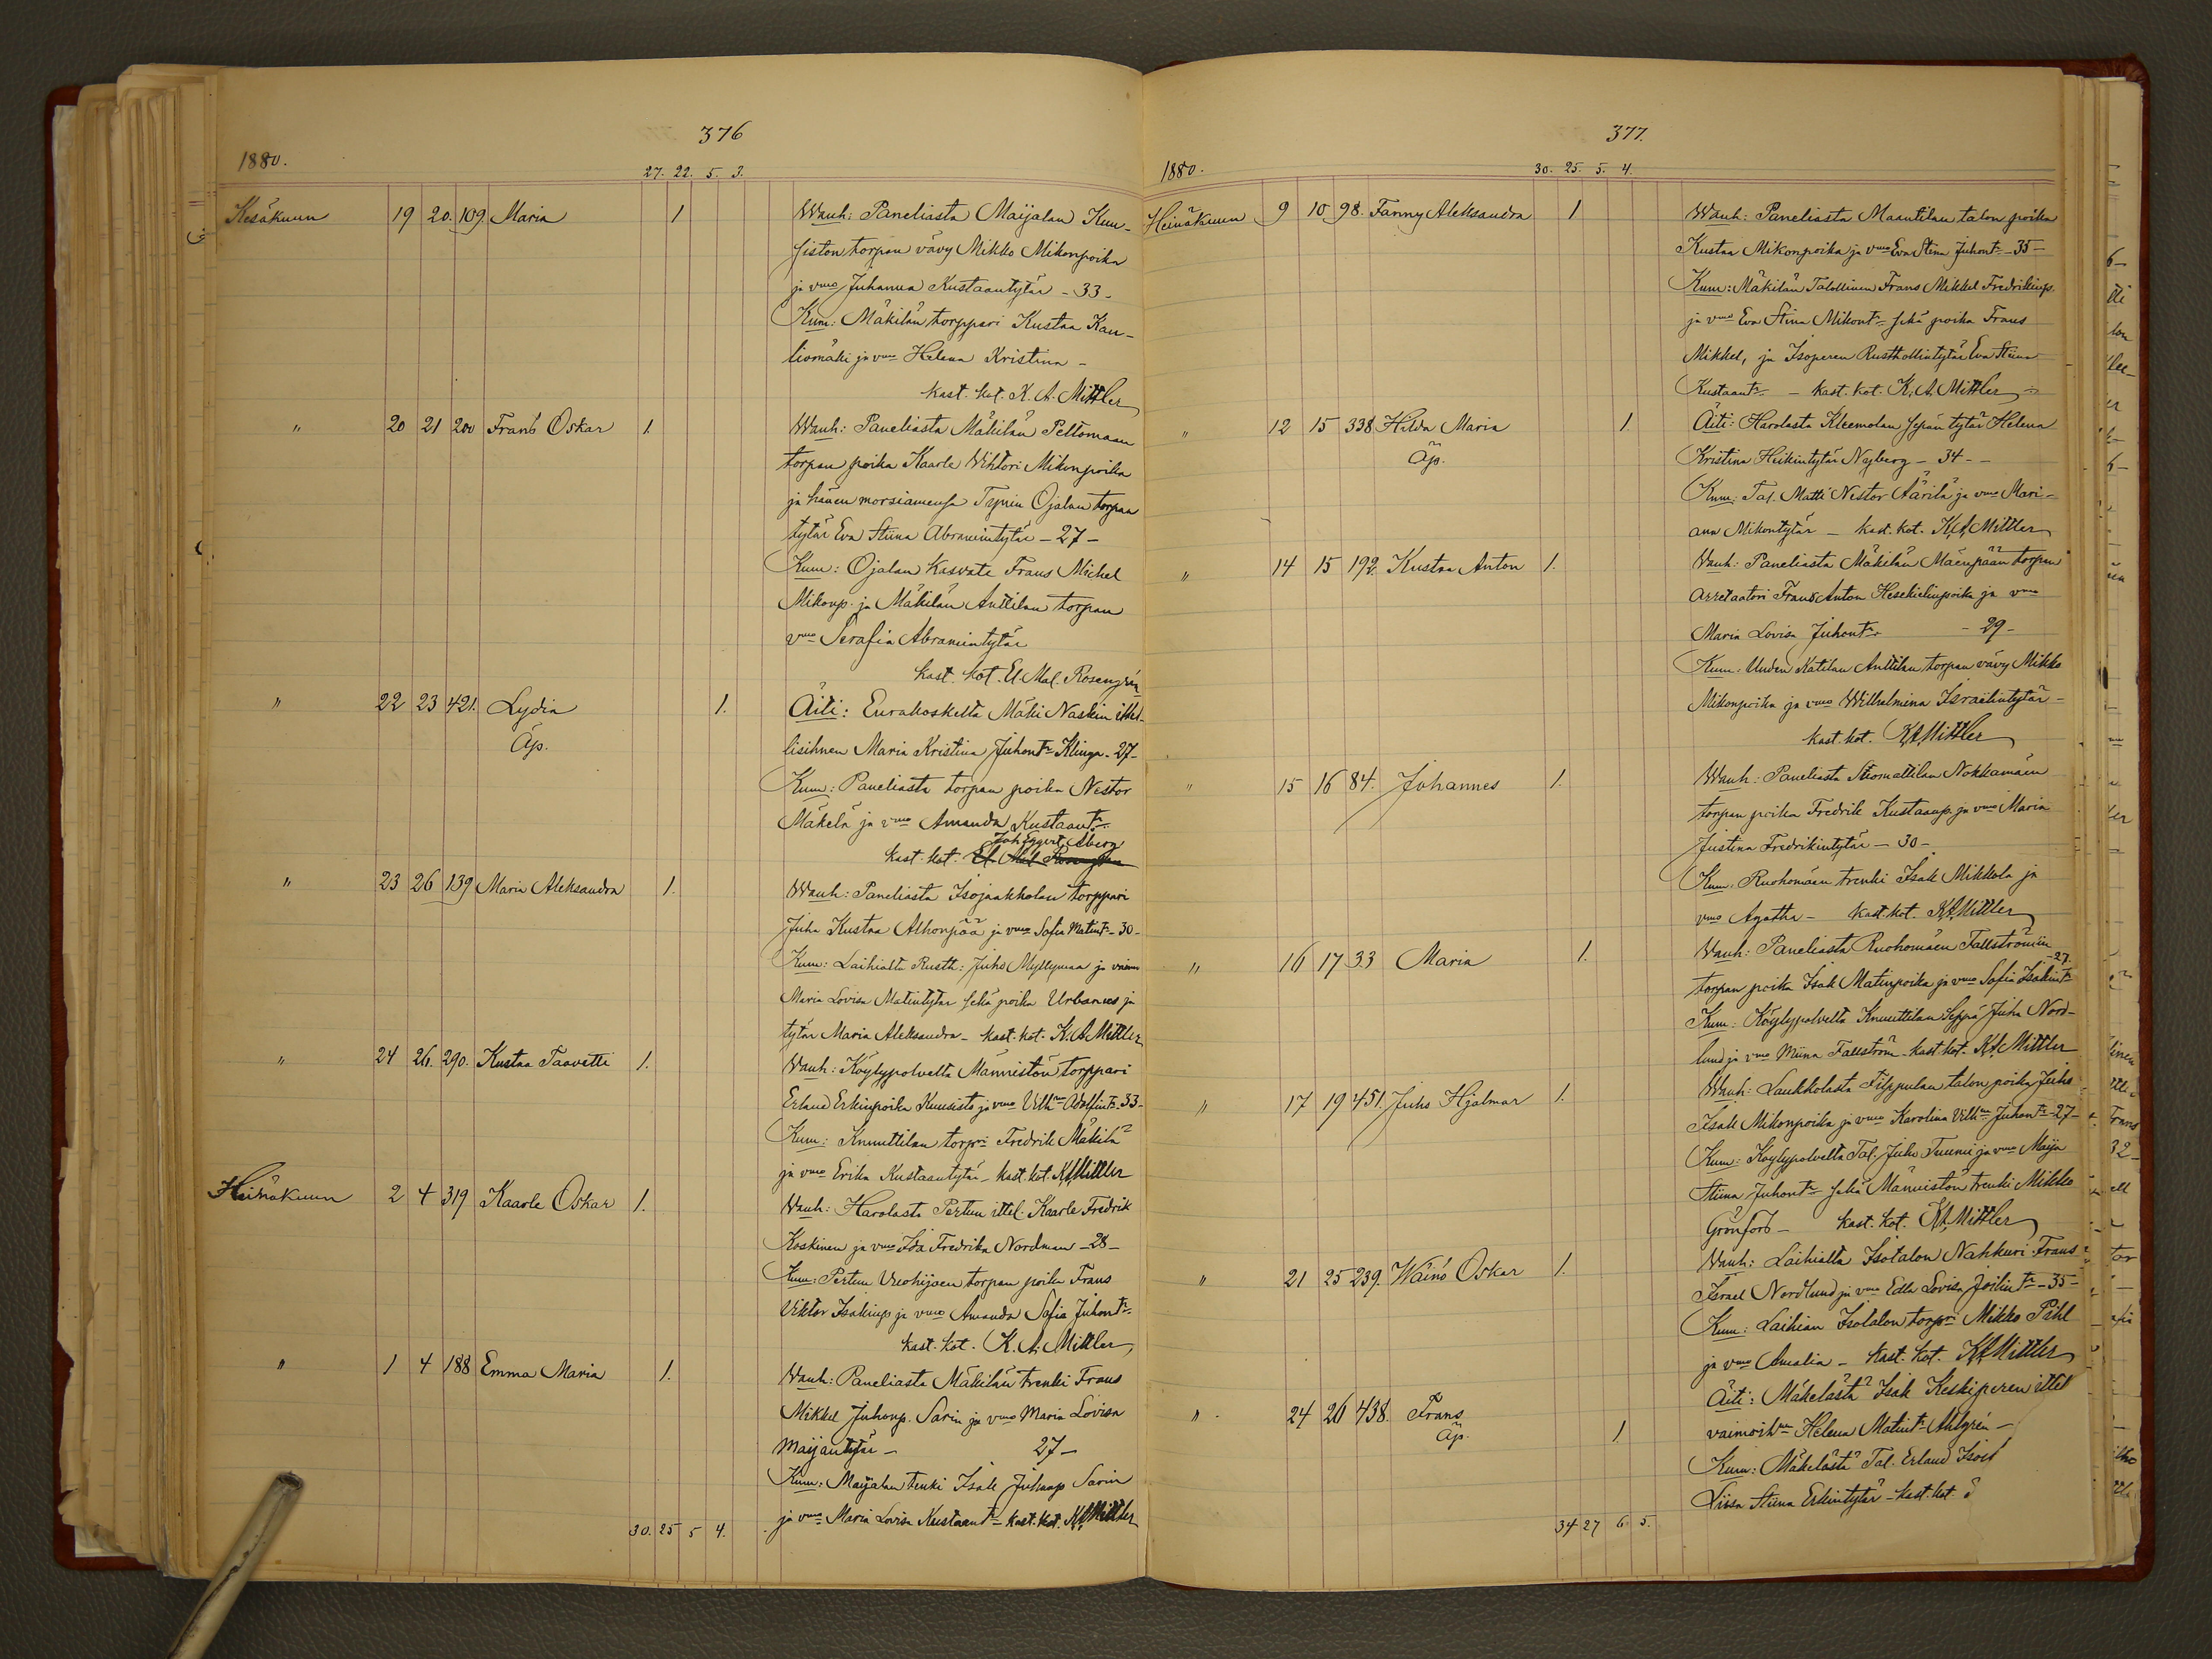 376
1880.
27. 22. 5. 3.
Kesäkuun 19 20. 109. Maria 1 Wanh: Paneliasta Maijalan Kun-
siston torpan vävy Mikko Mikonpoika
ja vmo Juhanna Kustaantytär - 33 -
Kum: Mäkilän torppari Kustaa Kau-
liomäki ja vmo Helena Kristina -
kast. kot. K. A. Mittler
" 20 21 200 Frans Oskar 1. Wanh: Paneliasta Mäkilän Peltomaan
torpan poika Kaarle Wihtori Mikonpoika
ja hänen morsiamensa Ojalan torpan
tytär Eva Stiina Abramintytär - 27 -
Kum: Ojalan Kasvate Frans Michel
Mikonp. ja Mäkilän Anttilan torpan
vmo Serafia Abramintytär
kast. kot. El. Mal. Rosengrén
" 22 23 421. Lydia 1. Äiti: Eurakoskelta Mäki Naskin ittel-
Äp. lisihnen Maria Kristina Juhontr Klinga - 27 -
Kum: Paneliasta torpan poika Nestor
Mäkelä ja vmo Amanda Kustaantr.
Joh Eggert Åberg
kast. kot. El. Mal. Rosengrén
" 23 26 139 Maria Aleksandra 1. Wanh: Paneliasta Isojaakkolan torppari
Juha Kustaa Alhonpää ja vmo Sofia Matintr - 30 -
Kum: Laihialta Rusth: Juho Myllymaa ja vaimo
Maria Lovisa Matintytär sekä poika Urbanus ja
tytär Maria Aleksandra - kast. kot. K. A. Mittler
" 24 26. 290. Kustaa Taavetti 1. Wanh: Köylypolvelta Männistön torppari
Erland Erkinpoika Kuusisto ja vmo Vilhna Adolfintr - 33 -
Kum: Knuuttilan torpri Fredrik Mäkilä
ja vmo Erika Kustaantytär - kast. kot. KAMittler
Heinäkuun 2 4 319 Kaarle Oskar 1. Wanh: Harolasta Pertun ittel. Kaarle Fredrik
Koskinen ja vmo Ida Fredrika Nordman - 28 -
Kum: Pertun Vuohijoen torpan poika Frans
Viktor Isakinp. ja vmo Amanda Sofia Juhontr.
kast. kot. K. A. Mittler
" 1 4 188 Emma Maria 1. Wanh: Paneliasta Mäkilän trenki Frans
Mikkel Juhonp. Sarin ja vmo Maria Lovisa
Maijantytär - 27 -
Kum: Maijalan trenki Isak Juhonp Sarin
ja vmo Maria Lovisa Kustaantr - kast. kot. KAMittler
30. 25 5 4.
377.
1880.
30. 25. 5. 4.
Heinäkuun 9 10 98. Fanny Aleksandra 1 Wanh: Paneliasta Maantilan talon poika
Kustaa Mikonpoika ja vmo Eva Stina Juhontr - 35 -
Kum: Mäkilän Talollinen Frans Mikkel Fredrikinp.
ja vmo Eva Stina Mikontr sekä poika Frans
Mikkel, ja Isoperen Rusthollintytär Eva Stiina
Kustaantr - kast. kot. K. A. Mittler
" 12 15 338 Hilda Maria 1. Äiti: Harolasta Kleemolan sepän tytär Helena
Äp. Kristina Heikintytär Nyberg - 34 -
Kum: Tal. Matti Nestor Äärilä ja vmo Mari-
ana Mikontytär - kast. kot. KAMittler
" 14 15 192 Kustaa Anton 1. Wanh: Paneliasta Mäkilän Mäenpään torpan
arretaatori Frans Anton Hesekielinpoika ja vmo
Maria Lovisa Juhontr - 29 -
Kum: Uuden Katilan Anttilan torpan vävy Mikko
Mikonpoika ja vmo Wilhelmina Israelintytär -
kast. kot. KAMittler
" 15 16 84. Johannes 1. Wanh: Paneliasta Nokkamäen
torpan poika Fredrik Kustaanp. ja vmo Maria
Justina Fredrikintytär - 30 -
Kum: Ruohomäen trenki Isak Mikkola ja
vmo Agatha - kast. kot. KAMittler
" 16 17 33 Maria 1. Wanh: Paneliasta Ruohomäen Fallströmin
torpan poika Isak Matinpoika ja vmo Sofia Isakintr - 27.
Kum: Köylypolvelta Knuuttilan Seppä Juha Nord-
lund ja vmo Miina Fallström - kast. kot. KAMittler
" 17 19 451. Juho Hjalmar 1. Wanh: Laukkolasta Filppulan talon poika Juho
Isak Mikonpoika ja vmo Karolina Vilhna Juhontr - 27 -
Kum: Köylypolvelta Tal. Juho Tuuni ja vmo Maija
Stiina Juhontr sekä Männistön trenki Mikko
Grönfors - kast. kot. KAMittler
" 21 25 239. Wäinö Oskar 1. Wanh: Laihialta Isotalon Nahkuri Frans
Israel Nordlund ja vmo Edla Lovisa Joelintr - 35 -
Kum: Laihian Isotalon torpri Mikko Pihl
ja vmo Amalia - kast. kot. KAMittler
" 24 26 438. Frans 1 Äiti: Mäkelästä Isak Keskiperen ittel
Äp. vaimoihnen Helena Matintr Ahlgrén -
Kum: Mäkelästä Tal. Erland
Liisa Stiina Erkintytär - kast. kot.
34 27 6 5.